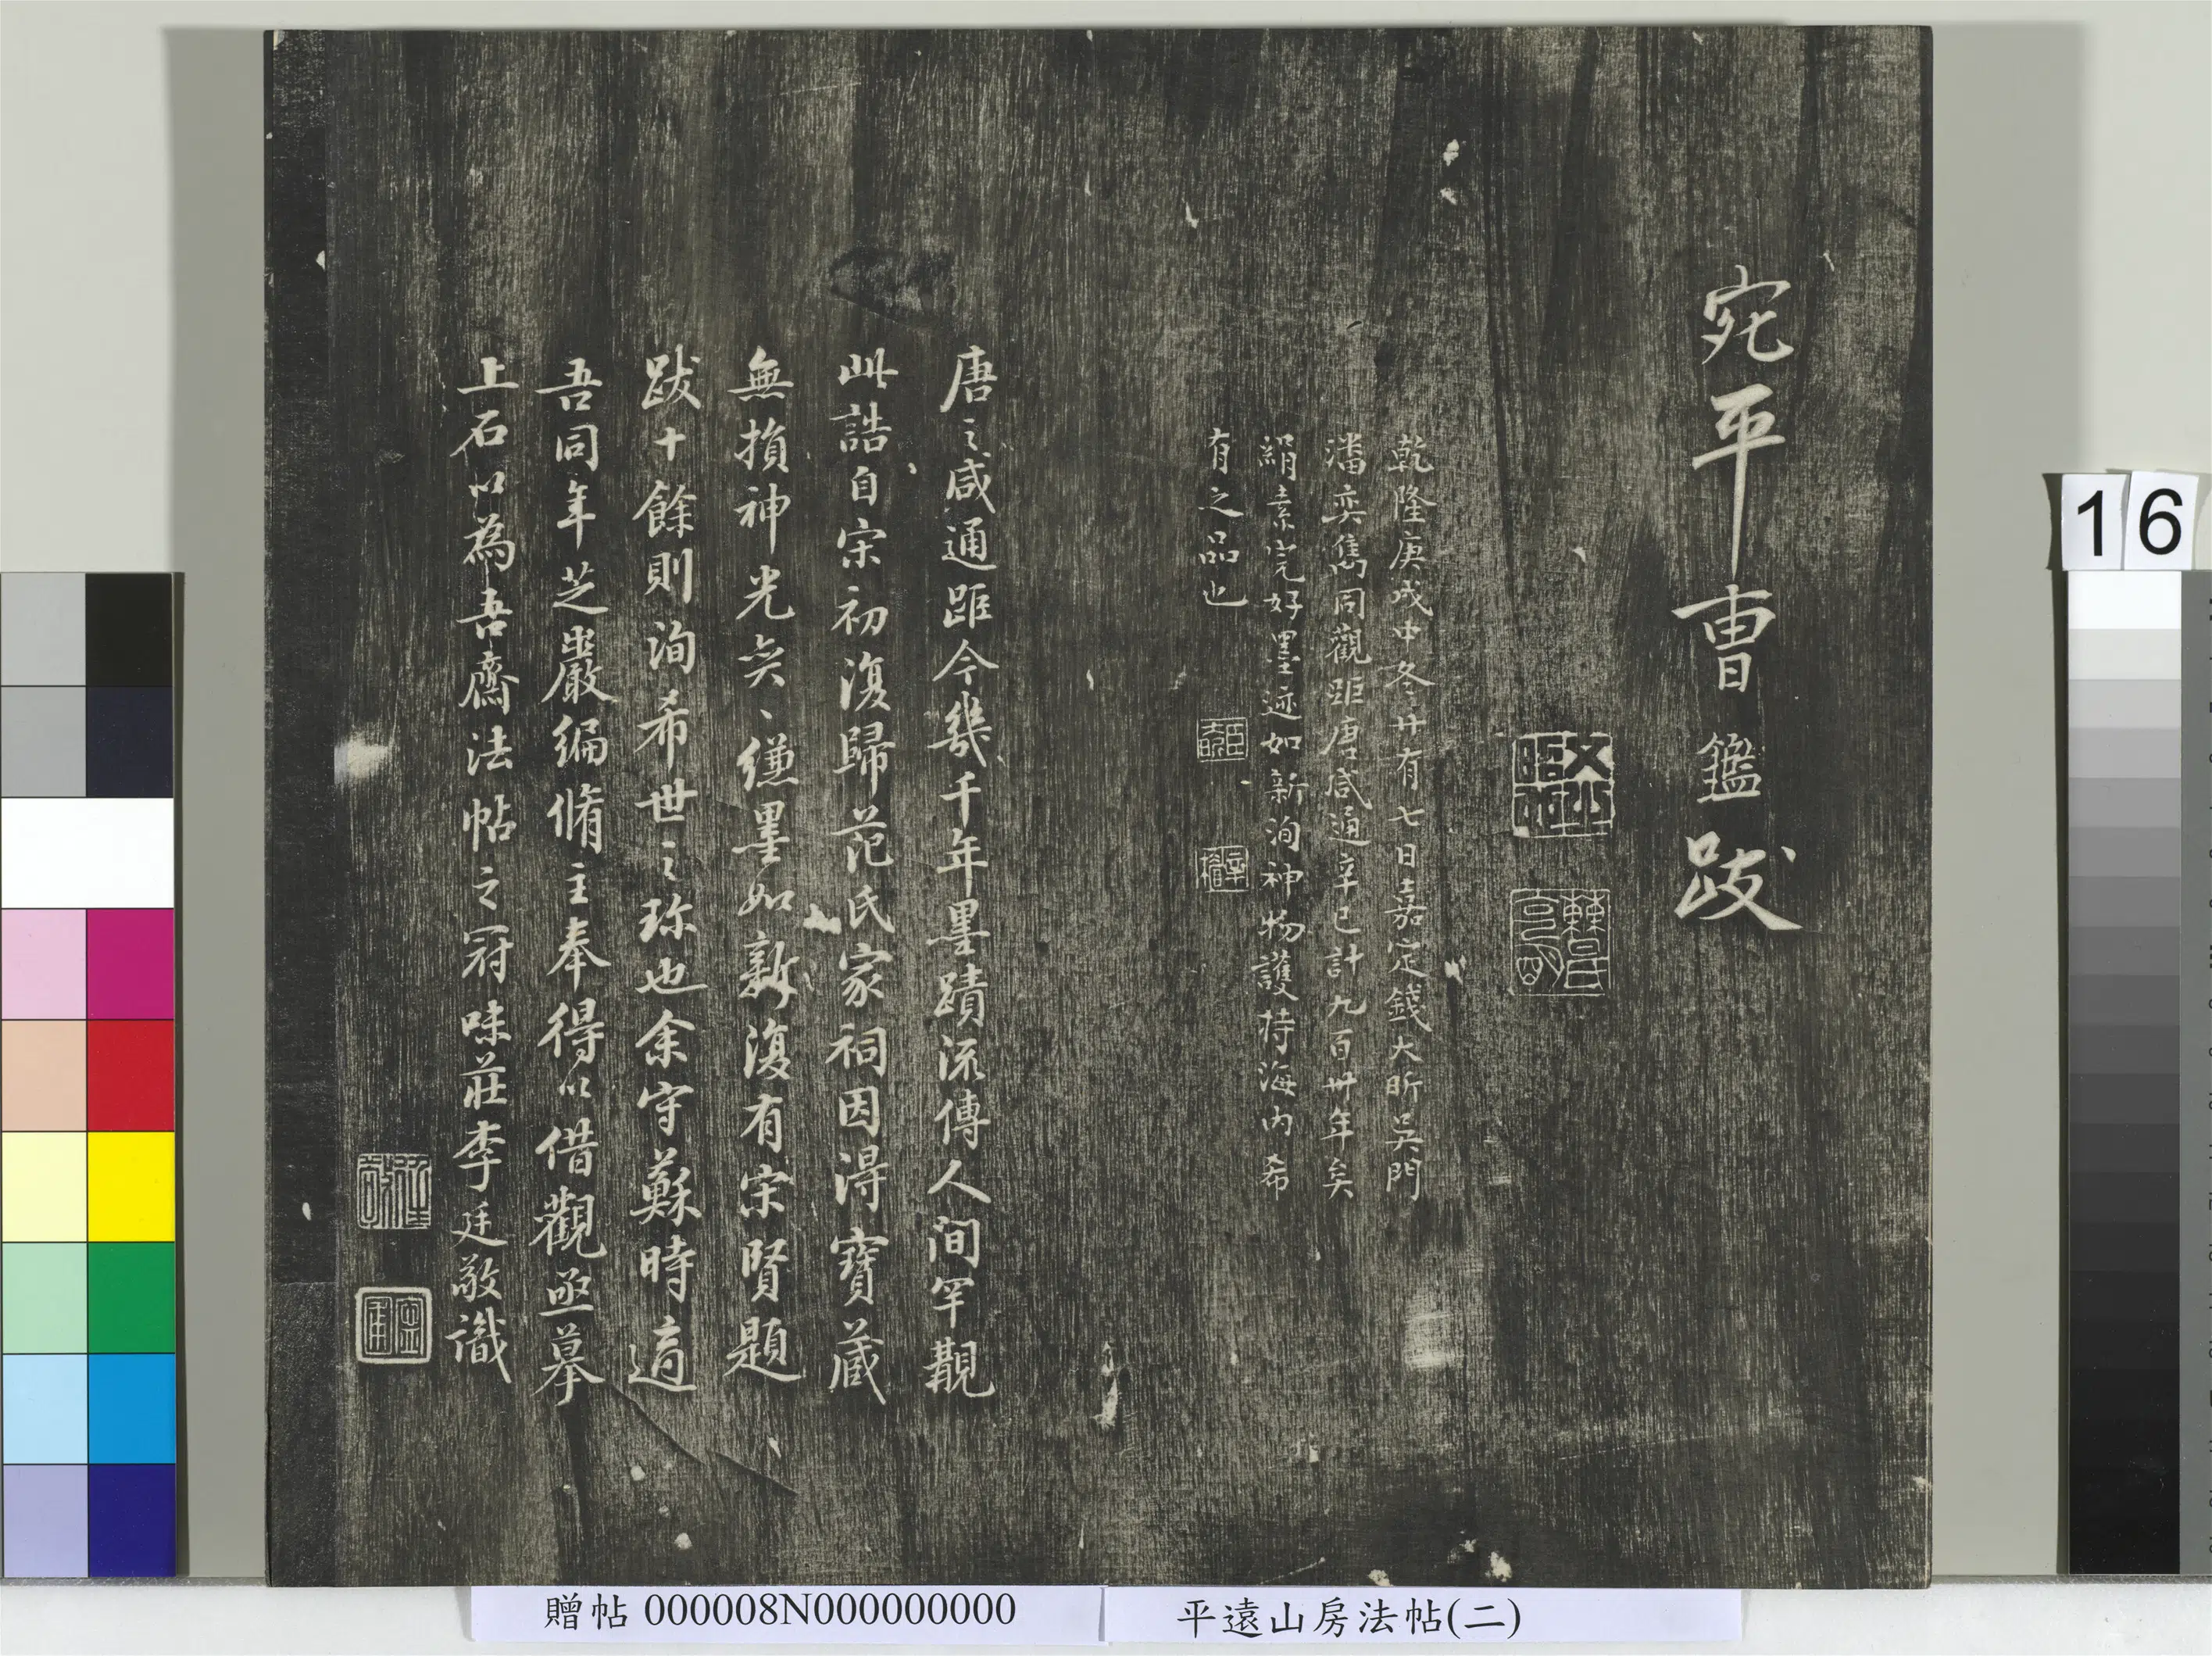 宛平曹鑑跋
乾隆庚戌中冬廿有七日嘉定錢大昕吳門
潘奕雋同觀距唐咸通辛巳計九百卅年矣
絹素完好墨迹如新洵神物護持海内希
有之品也
唐之咸通距今幾千年墨蹟流傳人間罕覯
此誥自宋初復歸范氏家祠因得寶藏
無損神光奕、縑墨如新復有宋賢題
跋十餘則洵希世之珍也余守蘇時適
吾同年芝巖編脩主奉得以借觀亟摹
上石以為吾齋法帖之冠味莊李廷敬識
16
贈帖 000008N000000000
平遠山房法帖(二)